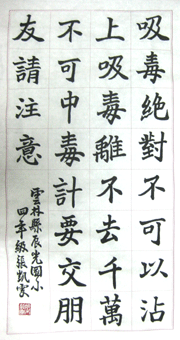 吸毒絕對不可以沾
上吸毒離不去千萬
不可中毒計要交朋
友請注意
雲林縣辰光國小
四年級張凱雯